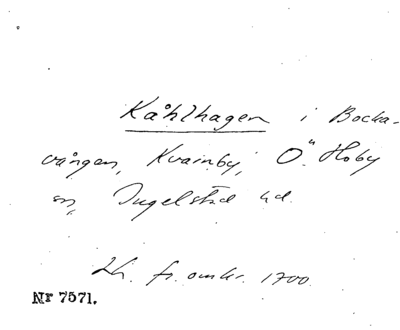 Kåhlhagen i Bocka-
vången, Kvarnby, Ö. Hoby
sn, Ingelstad hd.
Lh. fr. omkr. 1700.
Nr 7571.